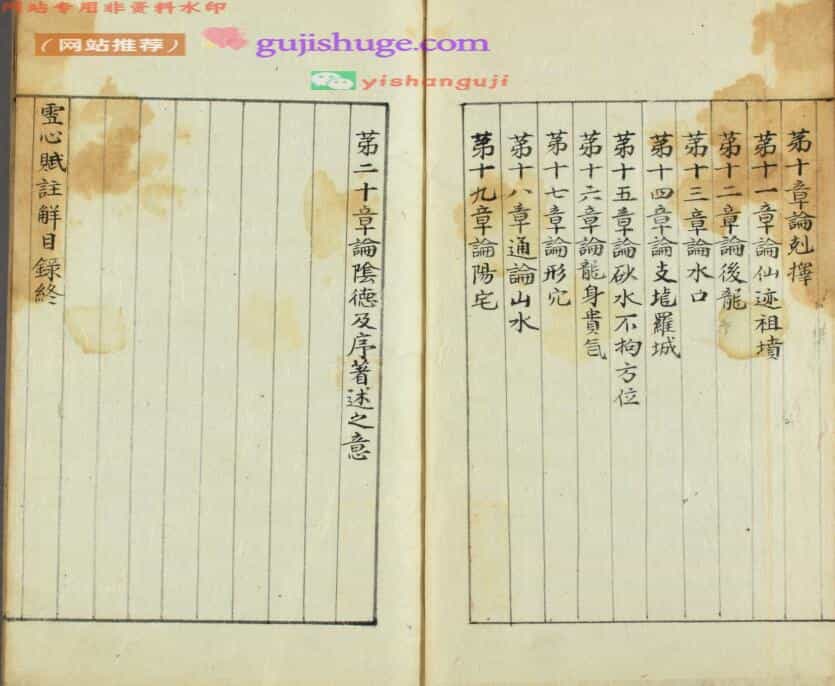 网站专用非资料水印
（网站推荐）
gujishuge.com
yishanguji
第十章論剋擇
第十一章論仙迹祖墳
第十二章論後龍
第十三章論水口
第十四章論支壠羅城
第十五章論砂水不拘方位
第十六章論龍身貴氣
第十七章論形穴
第十八章通論山水
第十九章論陽宅
第二十章論隂德及序著述之意
靈心賦註解目錄終